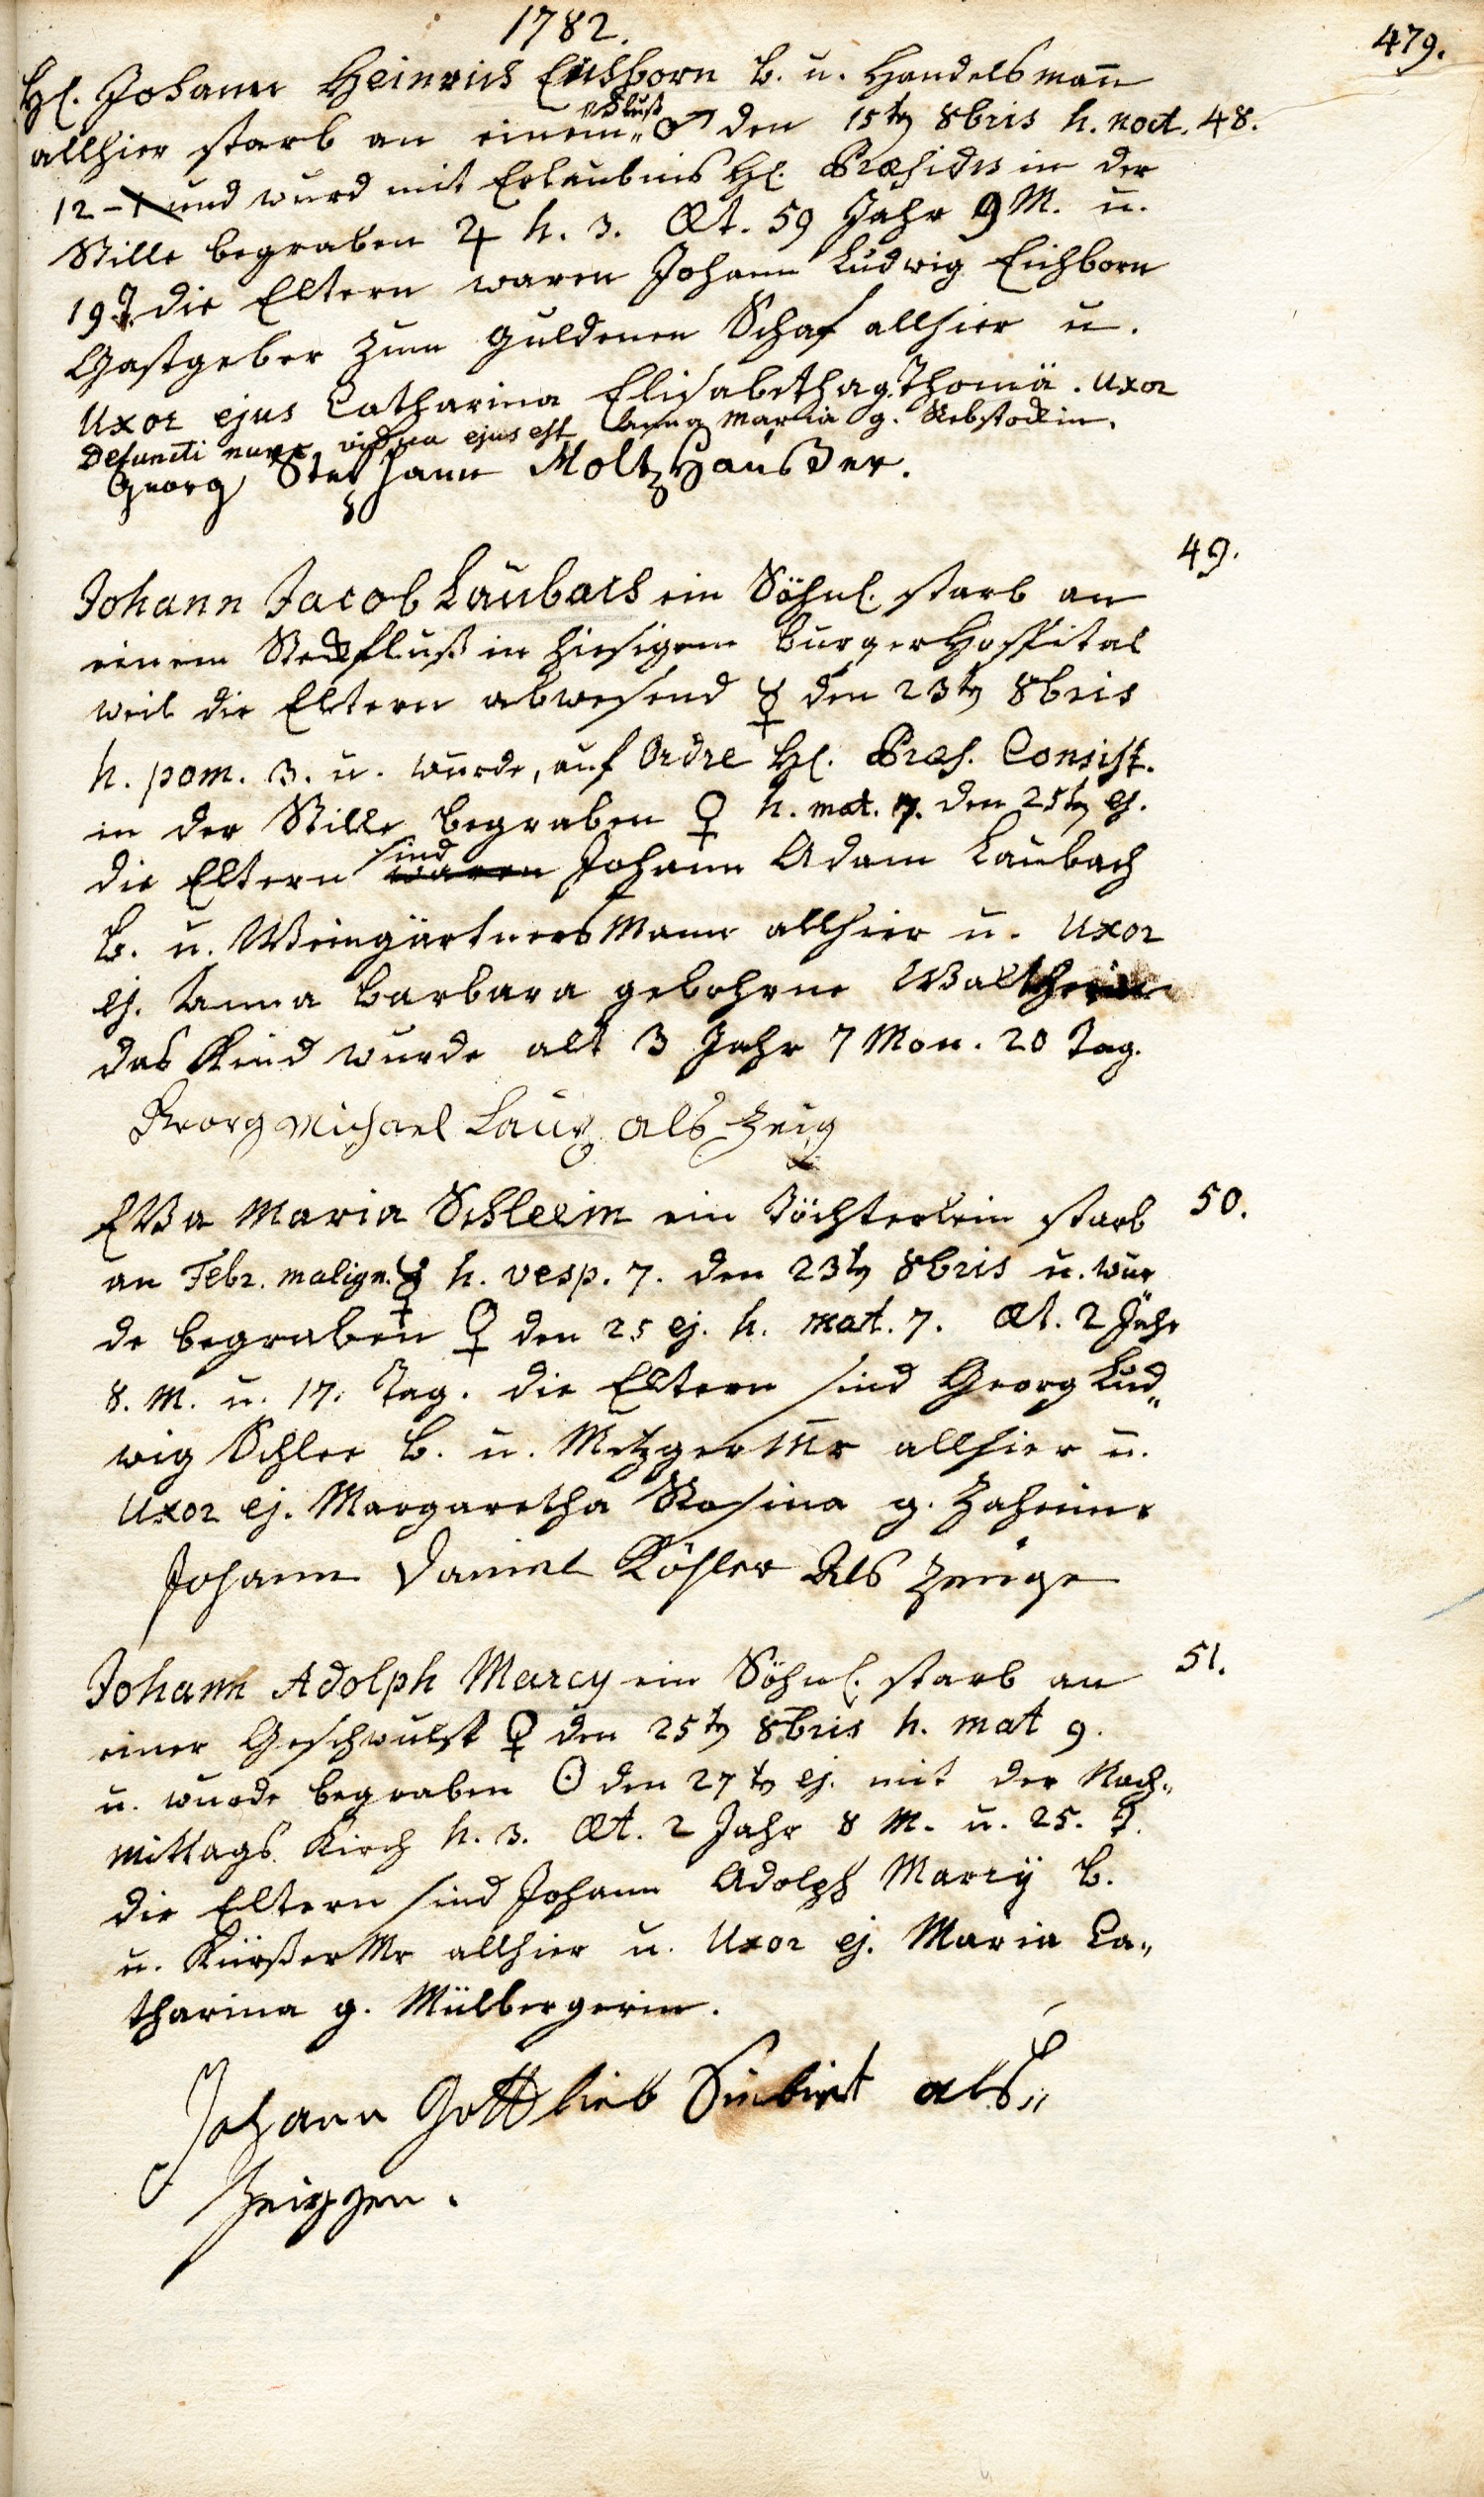 1782.
479.
Hl. Johann Heinrich Eichborn b. u. Handelsmañ
allhier starb an einem „Fluß ♂ den 15tꝫ 8bris h. noct. 48.
12 - 1 und wurd mit Erlaubnis Hl. Præsidis in der
Stille begraben ♃ h. 3. Æt. 59 Jahr 9 M. u.
19 T. die Eltern waren Johann Ludwig Eichborn
Gastgeber zum guldenen Schaf allhier u.
Uxor ejus Catharina Elisabetha g. Thomä. Uxor
Defuncti nunc vidua ejus est Anna Maria g. Rebstockin.
Georg Stephann Moltzhausßer.
49.
Johann Jacob Laubach ein Söhnl. starb an
einem Steckfluß in hiesigem Burger Hospital
weil die Eltern abwesend ☿ den 23tꝫ 8bris
h. pom. 3. u. wurde, auf Ordre Hl. Præs. Consist.
in der Stille begraben ♀ h. mat. 7. den 25tꝫ ej.
die Eltern waren sind Johann Adam Laubach
b. u. Weingärtners Mann allhier u. Uxor
ej. Anna Barbara gebohrne
das Kind wurde alt 3 Jahr 7 Mon. 20 Tag.
Georg Michael Lautz als Zeig
EVa Maria Schleein ein Töchterlein starb 50.
an Febr. malign. ☿ h. vesp. 7. den 23tꝫ 8bris u. wur
de begraben ♀ den 25 ej. h. mat. 7. Æt. 2 Jahr
8. M. u. 17. Tag. die Eltern sind Georg Lud„
wig Schlee b. u. Metzger Mr allhier u.
Uxor ej. Margaretha Rosina g. Zaheim.
Johann Daniel Köhler Als Zeuge
Johann Adolph Marcy ein Söhnl. starb an 51.
einer Geschwulst ♀ den 25tꝫ 8bris h. mat 9.
u. wurde begraben ☉ den 27tꝫ ej. mit der Nach„
mittags Kirch h. 3. Æt. 2 Jahr 8 M. u. 25. T.
die Eltern sind Johann Adolph Marcÿ b.
u. Kürßer Mr allhier u. Uxor ej. Maria Ca„
tharina g. Mülbergerin.
Johann Gottlieb als„
Zeiggen.